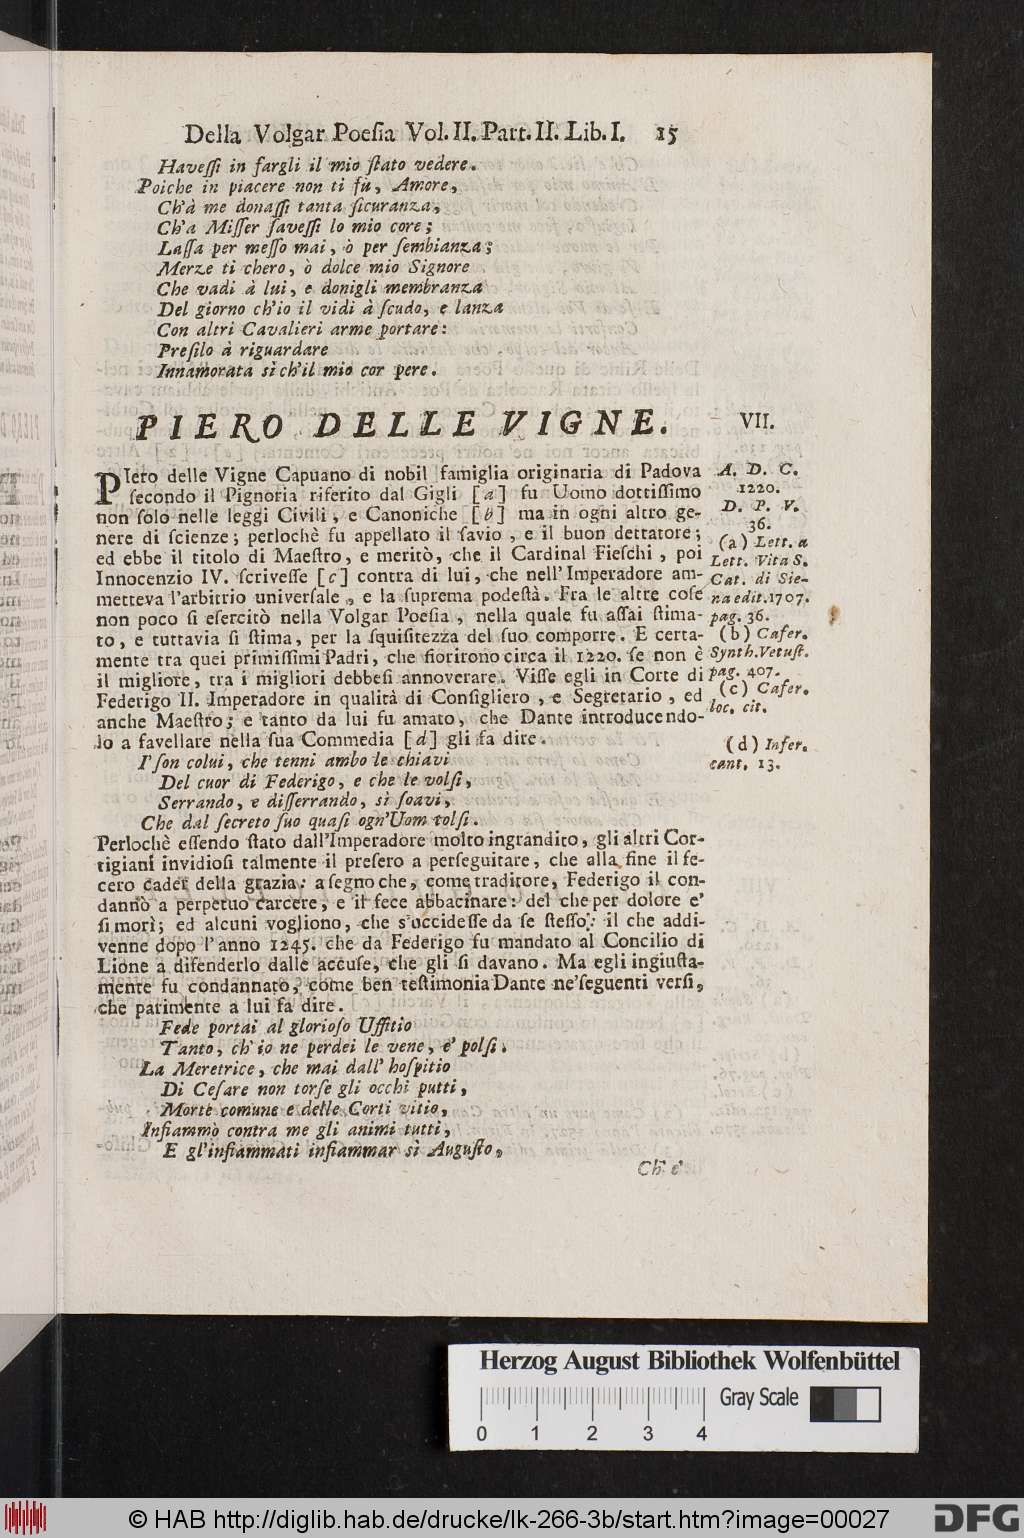 Della Volgar Poesia Vol. II. Part. II. Lib. I. 15
Havessi in fargli il mio stato vedere.
Poiche in piacere non ti fù, Amore,
Ch'à me donassi tanta sicuranza,
Ch'a Misser savessi lo mio core;
Lassa per messo mai, ò per sembianza;
Merze ti chero, ò dolce mio Signore
Che vadi à lui, e donigli membranza
Del giorno ch'io il vidi à scudo, e lanza
Con altri Cavalieri arme portare:
Presilo à riguardare
Innamorata sì ch'il mio cor pere.
PIERO DELLE VIGNE. VII.
PIero delle Vigne Capuano di nobil famiglia originaria di Padova
secondo il Pignoria riferito dal Gigli [a] fu Uomo dottissimo
non solo nelle leggi Civili, e Canoniche [b] ma in ogni altro ge-
nere di scienze; perlochè fu appellato il savio, e il buon dettatore;
ed ebbe il titolo di Maestro, e meritò, che il Cardinal Fieschi, poi
Innocenzio IV. scrivesse [c] contra di lui, che nell'Imperadore am-
metteva l'arbitrio universale, e la suprema podestà. Fra le altre cose
non poco si esercitò nella Volgar Poesia, nella quale fu assai stima-
to, e tuttavia si stima, per la squisitezza del suo comporre. E certa-
mente tra quei primissimi Padri, che fiorirono circa il 1220. se non è
il migliore, tra i migliori debbesi annoverare. Visse egli in Corte di
Federigo II. Imperadore in qualità di Consigliero, e Segretario, ed
anche Maestro; e tanto da lui fu amato, che Dante introducendo-
lo a favellare nella sua Commedia [d] gli fa dire.
I' son colui, che tenni ambo le chiavi
Del cuor di Federigo, e che le volsi,
Serrando, e disserrando, sì soavi,
Che dal secreto suo quasi ogn'Uom tolsi.
Perlochè essendo stato dall'Imperadore molto ingrandito, gli altri Cor-
tigiani invidiosi talmente il presero a perseguitare, che alla fine il fe-
cero cader della grazia: a segno che, come traditore, Federigo il con-
dannò a perpetuo carcere, e il fece abbacinare: del che per dolore e'
si morì; ed alcuni vogliono, che s'uccidesse da se stesso: il che addi-
venne dopo l'anno 1245. che da Federigo fu mandato al Concilio di
Lione a difenderlo dalle accuse, che gli si davano. Ma egli ingiusta-
mente fu condannato, come ben testimonia Dante ne'seguenti versi,
che parimente a lui fa dire.
Fede portai al glorioso Uffitio
Tanto, ch'io ne perdei le vene, e' polsi.
La Meretrice, che mai dall' hospitio
Di Cesare non torse gli occhi putti,
Morte comune e delle Corti vitio,
Infiammò contra me gli animi tutti,
E gl'infiammati infiammar sì Augusto,
Ch' e'
A. D. C.
1220.
D. P. V.
36.
(a) Lett. a
Lett. Vita S.
Cat. di Sie-
na edit. 1707.
pag. 36.
(b) Cafer.
Synth. Vetust.
pag. 407.
(c) Cafer.
loc. cit.
(d) Infer.
cant. 13.
Herzog August Bibliothek Wolfenbüttel
Gray Scale
0 1 2 3 4
© HAB http://diglib.hab.de/drucke/lk-266-3b/start.htm?image=00027
DFG